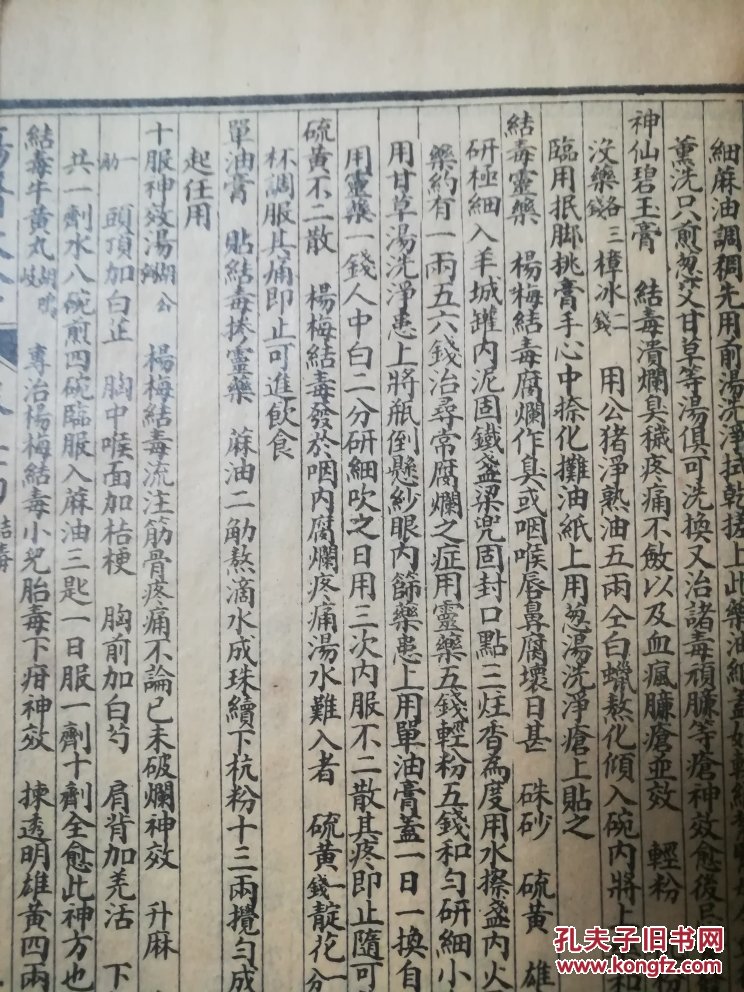 細蔴油調稠先用前湯洗淨拭乾搓上此藥油紙蓋
薰洗只煎葱艾甘草等湯俱可洗換又治諸毒頑臁等瘡神效愈後忌
神仙碧玉膏 結毒潰爛臭穢疼痛不斂以及血瘋臁瘡並效 輕粉
沒藥各三錢 樟冰二錢 用公猪淨熟油五兩仝白蠟熬化傾入碗內將上 和
臨用抿脚挑膏手心中捺化攤油紙上用葱湯洗淨瘡上貼之
結毒靈藥 楊梅結毒腐爛作臭或咽喉唇鼻腐壞日甚 硃砂 硫黃 雄
研極細入羊城罐內泥固鐵盞梁兜固封口點三炷香為度用水擦盞內火
藥約有一兩五六錢治尋常腐爛之症用靈藥五錢輕粉五錢和勻研細小
用甘草湯洗淨患上將瓶倒懸紗眼內篩藥患上用單油膏蓋一日一換自
用靈藥一錢人中白二分研細吹之日用三次內服不二散其疼即止隨可
硫黃不二散 楊梅結毒發於咽內腐爛疼痛湯水難入者 硫黃一錢 靛花一分
杯調服其痛即止可進飲食
單油膏 貼結毒摻靈藥 蔴油二觔熬滴水成珠續下杭粉十三兩攪勻成
起任用
十服神效湯 楊梅結毒流注筋骨疼痛不論已未破爛神效 升麻
一觔 頭頂加白芷 胸中喉面加桔梗 胸前加白芍 肩背加羌活 下
共一劑水八碗煎四碗臨服入蔴油三匙一日服一劑十劑全愈此神方也
結毒牛黃丸 專治楊梅結毒小兒胎毒下疳神效 揀透明雄黃四兩
結毒
孔夫子旧书网
www.kongfz.com